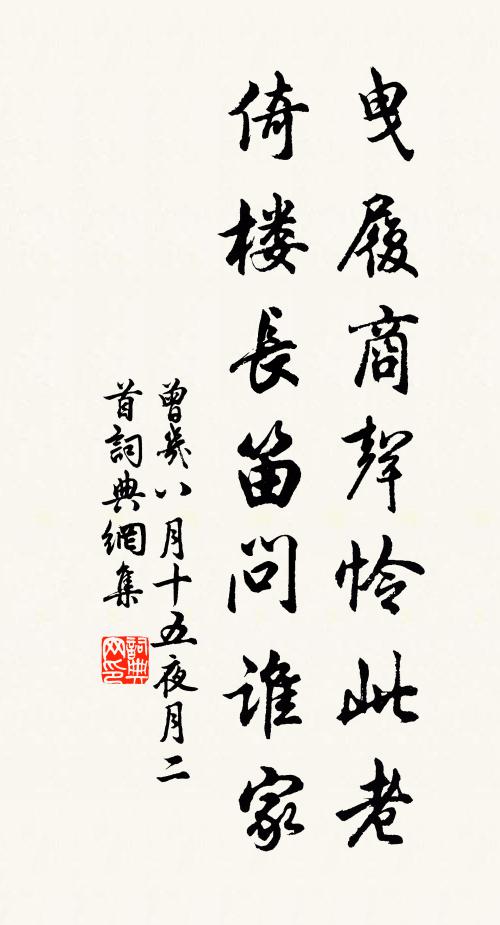 曳履商聲怜此老
倚楼長笛問誰家
曾幾八月十五夜月二
首詞典網集
詞典
网印